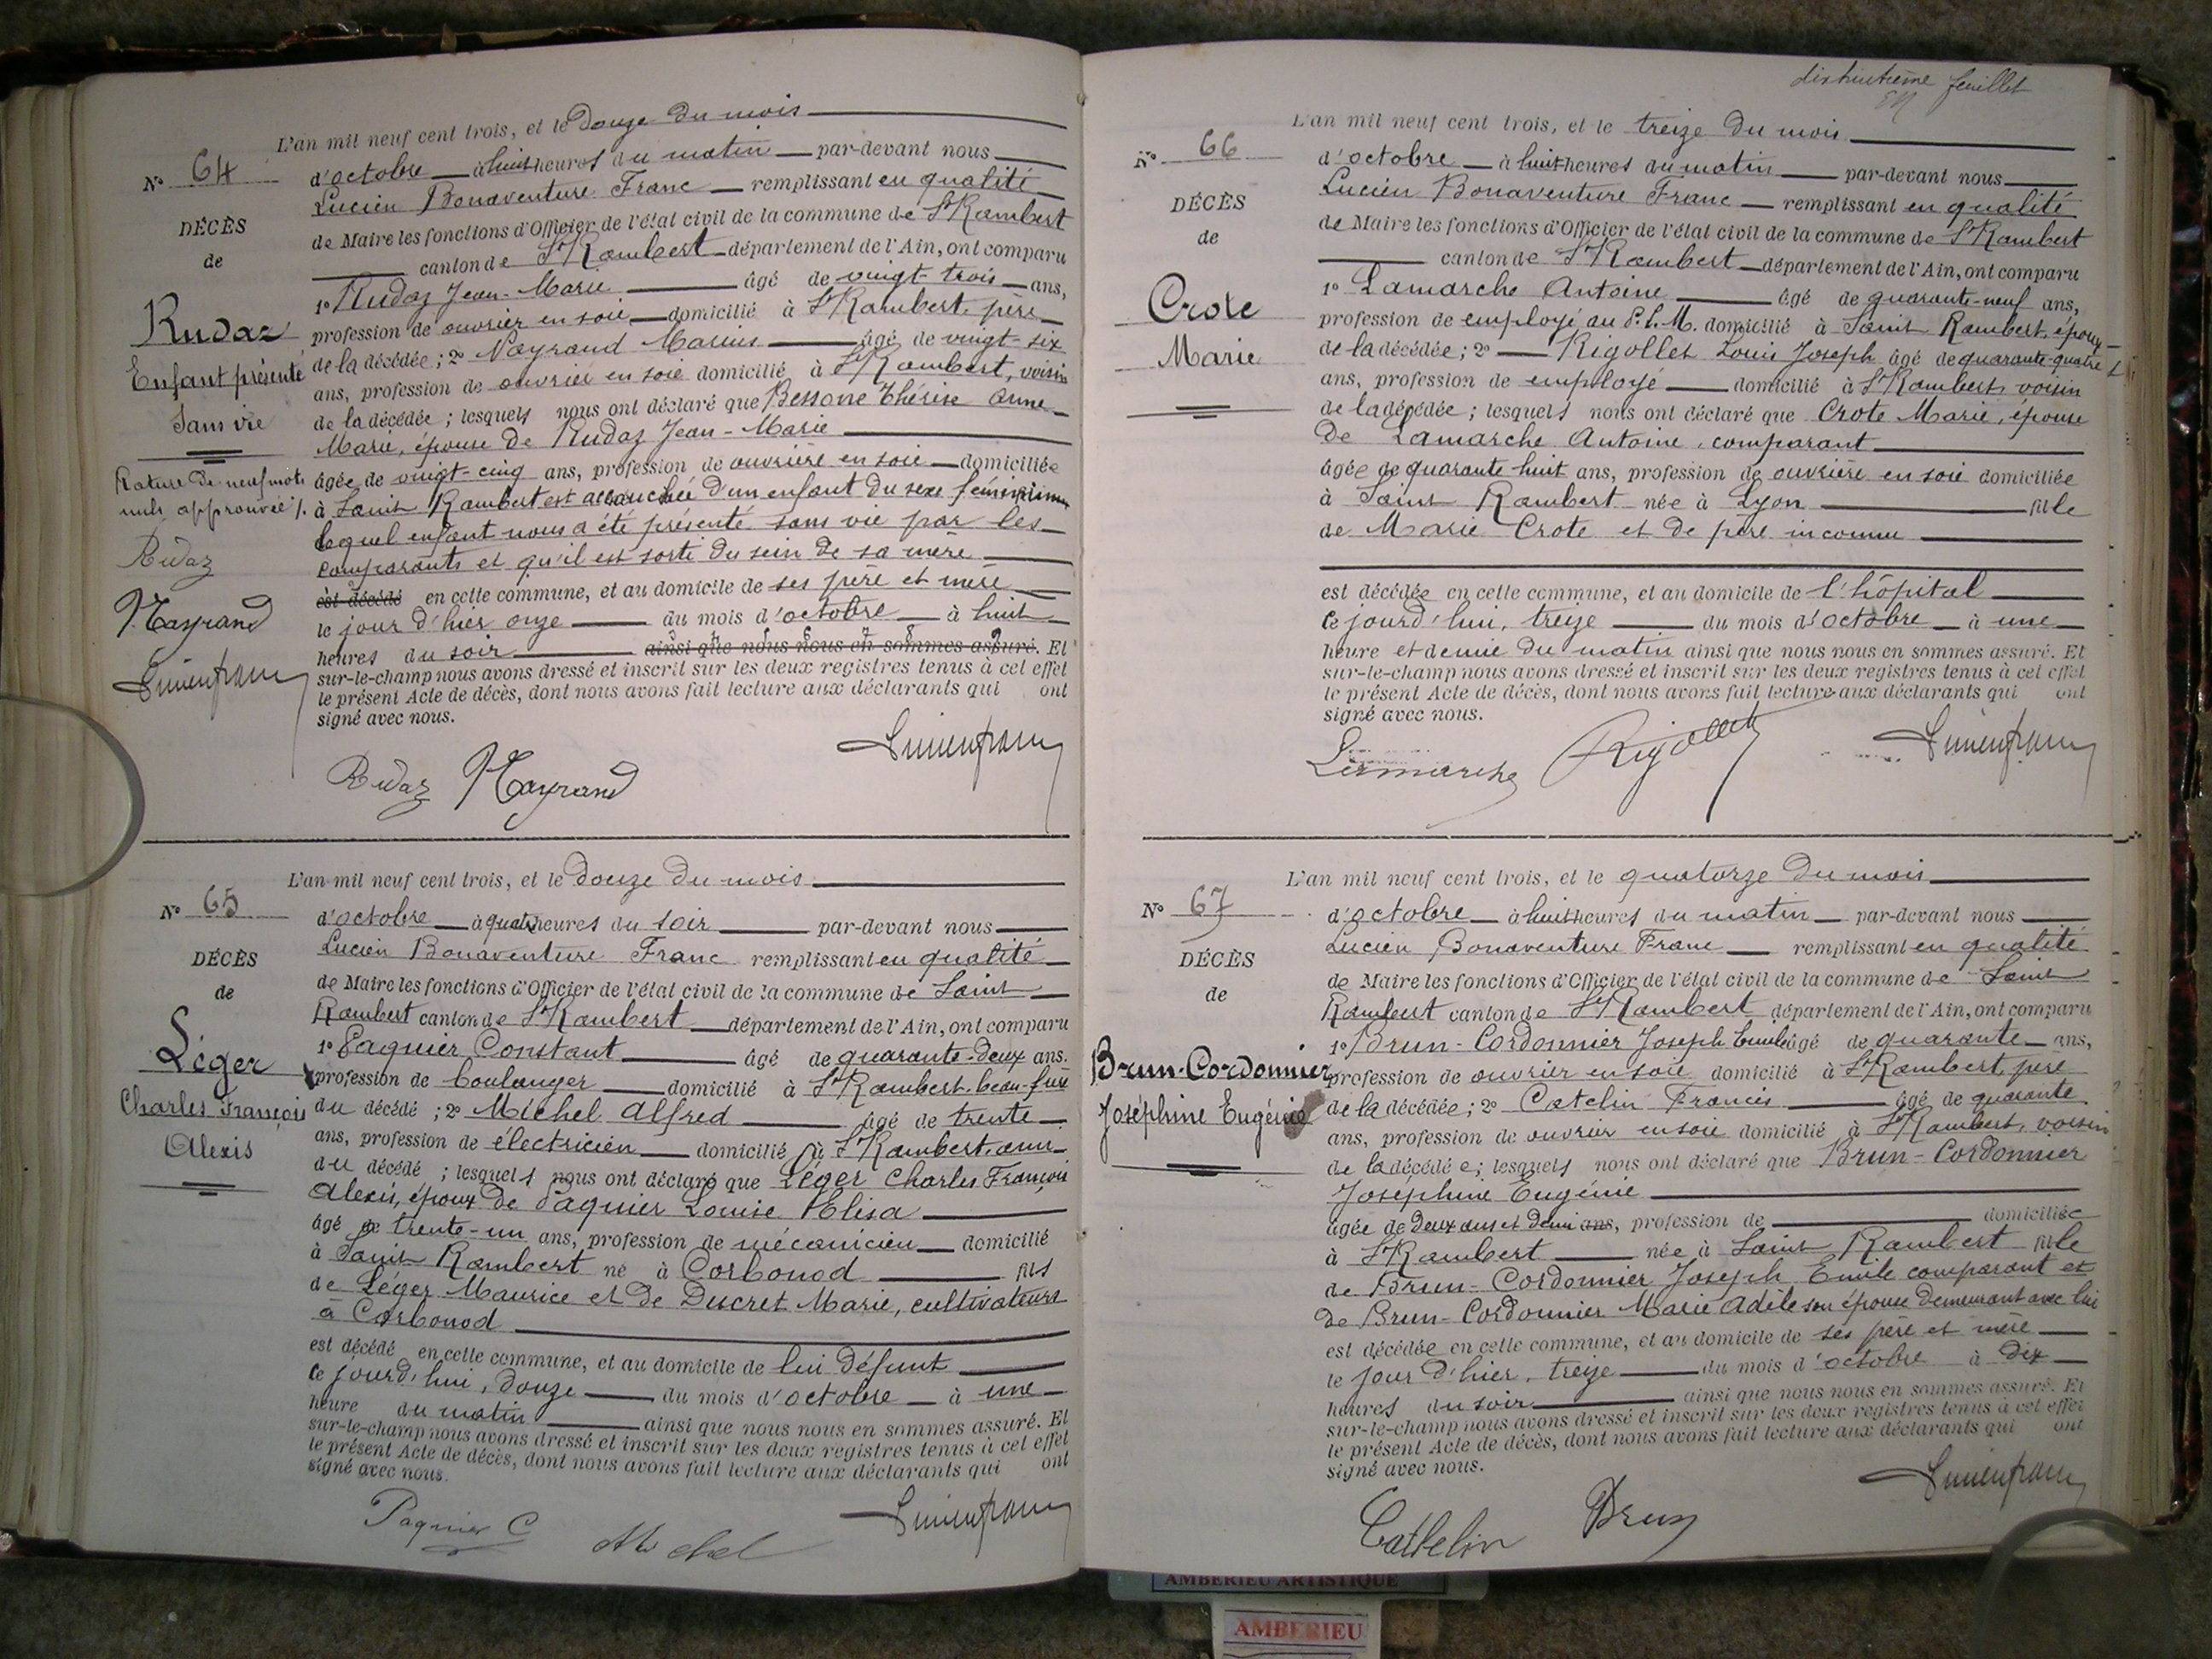 L'an mil neuf cent trois, et le douze du mois
N° 64
d'octobre à huit heures du matin par-devant nous
Lucien Bonaventure Franc remplissant en qualité
DÉCÈS
de Maire les fonctions d'Officier de l'état civil de la commune de St Rambert
de
canton de St Rambert département de l'Ain, ont comparu
1° Rudaz Jean-Marie âgé de vingt-trois ans,
Rudaz
profession de ouvrier en soie domicilié à St Rambert, père
Enfant présenté
de la décédée ; 2° Nayrand Marius âgé de vingt-six
ans, profession de ouvrier en soie domicilié à St Rambert, voisin
Sans vie
de la décédée ; lesquels nous ont déclaré que Bessone Thérèse Anne
Marie, épouse de Rudaz Jean-Marie
Rature de neuf mots
âgée de vingt-cinq ans, profession de ouvrière en soie domiciliée
nuls approuvée ./.
à Saint Rambert est accouchée d'un enfant du sexe féminin
lequel enfant nous a été présenté sans vie par les
Rudaz
comparants et qu'il est sorti du sein de sa mère
est décédé en cette commune, et au domicile de ses père et mère
Nayrand
le jour d'hier onze du mois d'octobre à huit
heures du soir ainsi que nous nous en sommes assuré. Et
Lucien franc
sur-le-champ nous avons dressé et inscrit sur les deux registres tenus à cet effet
le présent Acte de décès, dont nous avons fait lecture aux déclarants qui ont
signé avec nous.
Rudaz Nayrand Lucien franc
L'an mil neuf cent trois, et le douze du mois
N° 65
d'octobre à quatre heures du soir par-devant nous
Lucien Bonaventure Franc remplissant en qualité
DÉCÈS
de Maire les fonctions d'Officier de l'état civil de la commune de Saint
de
Rambert canton de St Rambert département de l'Ain, ont comparu
Léger
1° Paquier Constant âgé de quarante-deux ans.
profession de boulanger domicilié à St Rambert, beau-frère
Charles François
du décédé ; 2° Michel Alfred âgé de trente
Alexis
ans, profession de électricien domicilié à St Rambert, ami
du décédé ; lesquels nous ont déclaré que Léger Charles François
Alexis, époux de Paquier Louise Elisa
âgé de trente-un ans, profession de mécanicien domicilié
à Saint Rambert né à Corbonod fils
de Léger Maurice et de Ducret Marie, cultivateurs
à Corbonod
est décédé en cette commune, et au domicile de lui défunt
ce jourd'hui, douze du mois d'octobre à une
heure du matin ainsi que nous nous en sommes assuré. Et
sur-le-champ nous avons dressé et inscrit sur les deux registres tenus à cet effet
le présent Acte de décès, dont nous avons fait lecture aux déclarants qui ont
signé avec nous.
Paquier C Michel Lucien franc
dixhuitième feuillet
L'an mil neuf cent trois, et le treize du mois
N° 66
d'octobre à huit heures du matin par-devant nous
Lucien Bonaventure Franc remplissant en qualité
DÉCÈS
de Maire les fonctions d'Officier de l'état civil de la commune de St Rambert
de
canton de St Rambert département de l'Ain, ont comparu
Crote
1° Lamarche Antoine âgé de quarante-neuf ans,
profession de employé au P.L.M. domicilié à Saint Rambert, époux
Marie
de la décédée ; 2° Rigollet Louis Joseph âgé de quarante-quatre
ans, profession de employé domicilié à St Rambert, voisin
de la décédée ; lesquels nous ont déclaré que Crote Marie, épouse
de Lamarche Antoine, comparant
âgée de quarante-huit ans, profession de ouvrière en soie domiciliée
à Saint Rambert née à Lyon fille
de Marie Crote et de père inconnu
est décédée en cette commune, et au domicile de l'hôpital
ce jourd'hui, treize du mois d'octobre à une
heure et demie du matin ainsi que nous nous en sommes assuré. Et
sur-le-champ nous avons dressé et inscrit sur les deux registres tenus à cet effet
le présent Acte de décès, dont nous avons fait lecture aux déclarants qui ont
signé avec nous.
Lamarche Rigollet Lucien franc
L'an mil neuf cent trois, et le quatorze du mois
N° 67
d'octobre à huit heures du matin par-devant nous
Lucien Bonaventure Franc remplissant en qualité
DÉCÈS
de Maire les fonctions d'Officier de l'état civil de la commune de Saint
de
Rambert canton de St Rambert département de l'Ain, ont comparu
Brun-Cordonnier
1° Brun-Cordonnier Joseph Emile âgé de quarante ans,
profession de ouvrier en soie domicilié à St Rambert, père
Joséphine Eugénie
de la décédée ; 2° Catelin Francès âgé de quarante
ans, profession de ouvrier en soie domicilié à St Rambert, voisin
de la décédée ; lesquels nous ont déclaré que Brun-Cordonnier
Joséphine Eugénie
âgée de deux ans et demi ans, profession de domiciliée
à St Rambert née à Saint Rambert fille
de Brun-Cordonnier Joseph Emile comparant et
de Brun-Cordonnier Marie Adèle son épouse demeurant avec lui
est décédée en cette commune, et au domicile de ses père et mère
le jour d'hier, treize du mois d'octobre à dix
heures du soir ainsi que nous nous en sommes assuré. Et
sur-le-champ nous avons dressé et inscrit sur les deux registres tenus à cet effet
le présent Acte de décès, dont nous avons fait lecture aux déclarants qui ont
signé avec nous.
Cathelin Brun Lucien franc
AMBERIEU ARTISTIQUE
AMBERIEU